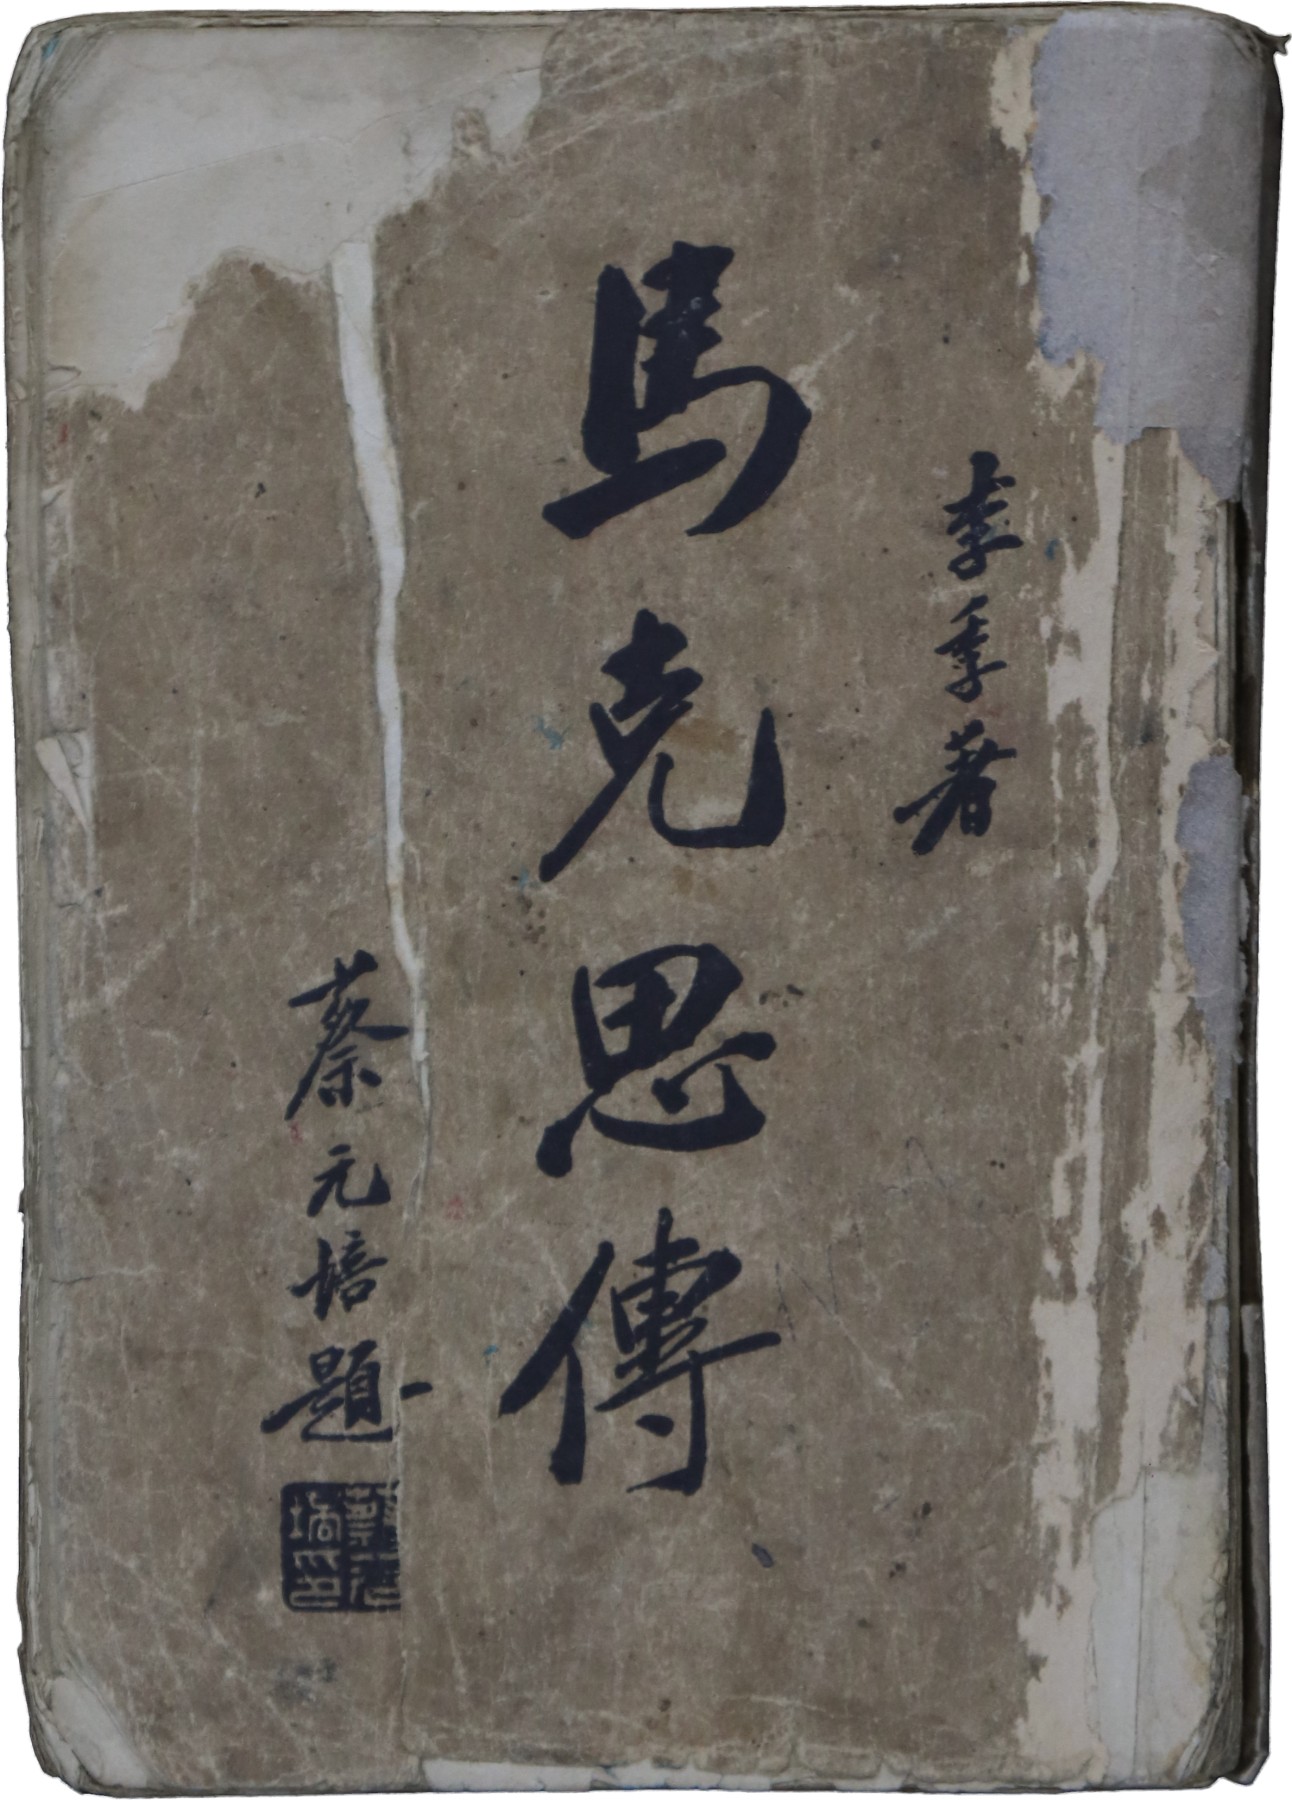 李季著
馬克思傳
蔡元培題
蔡元
培印